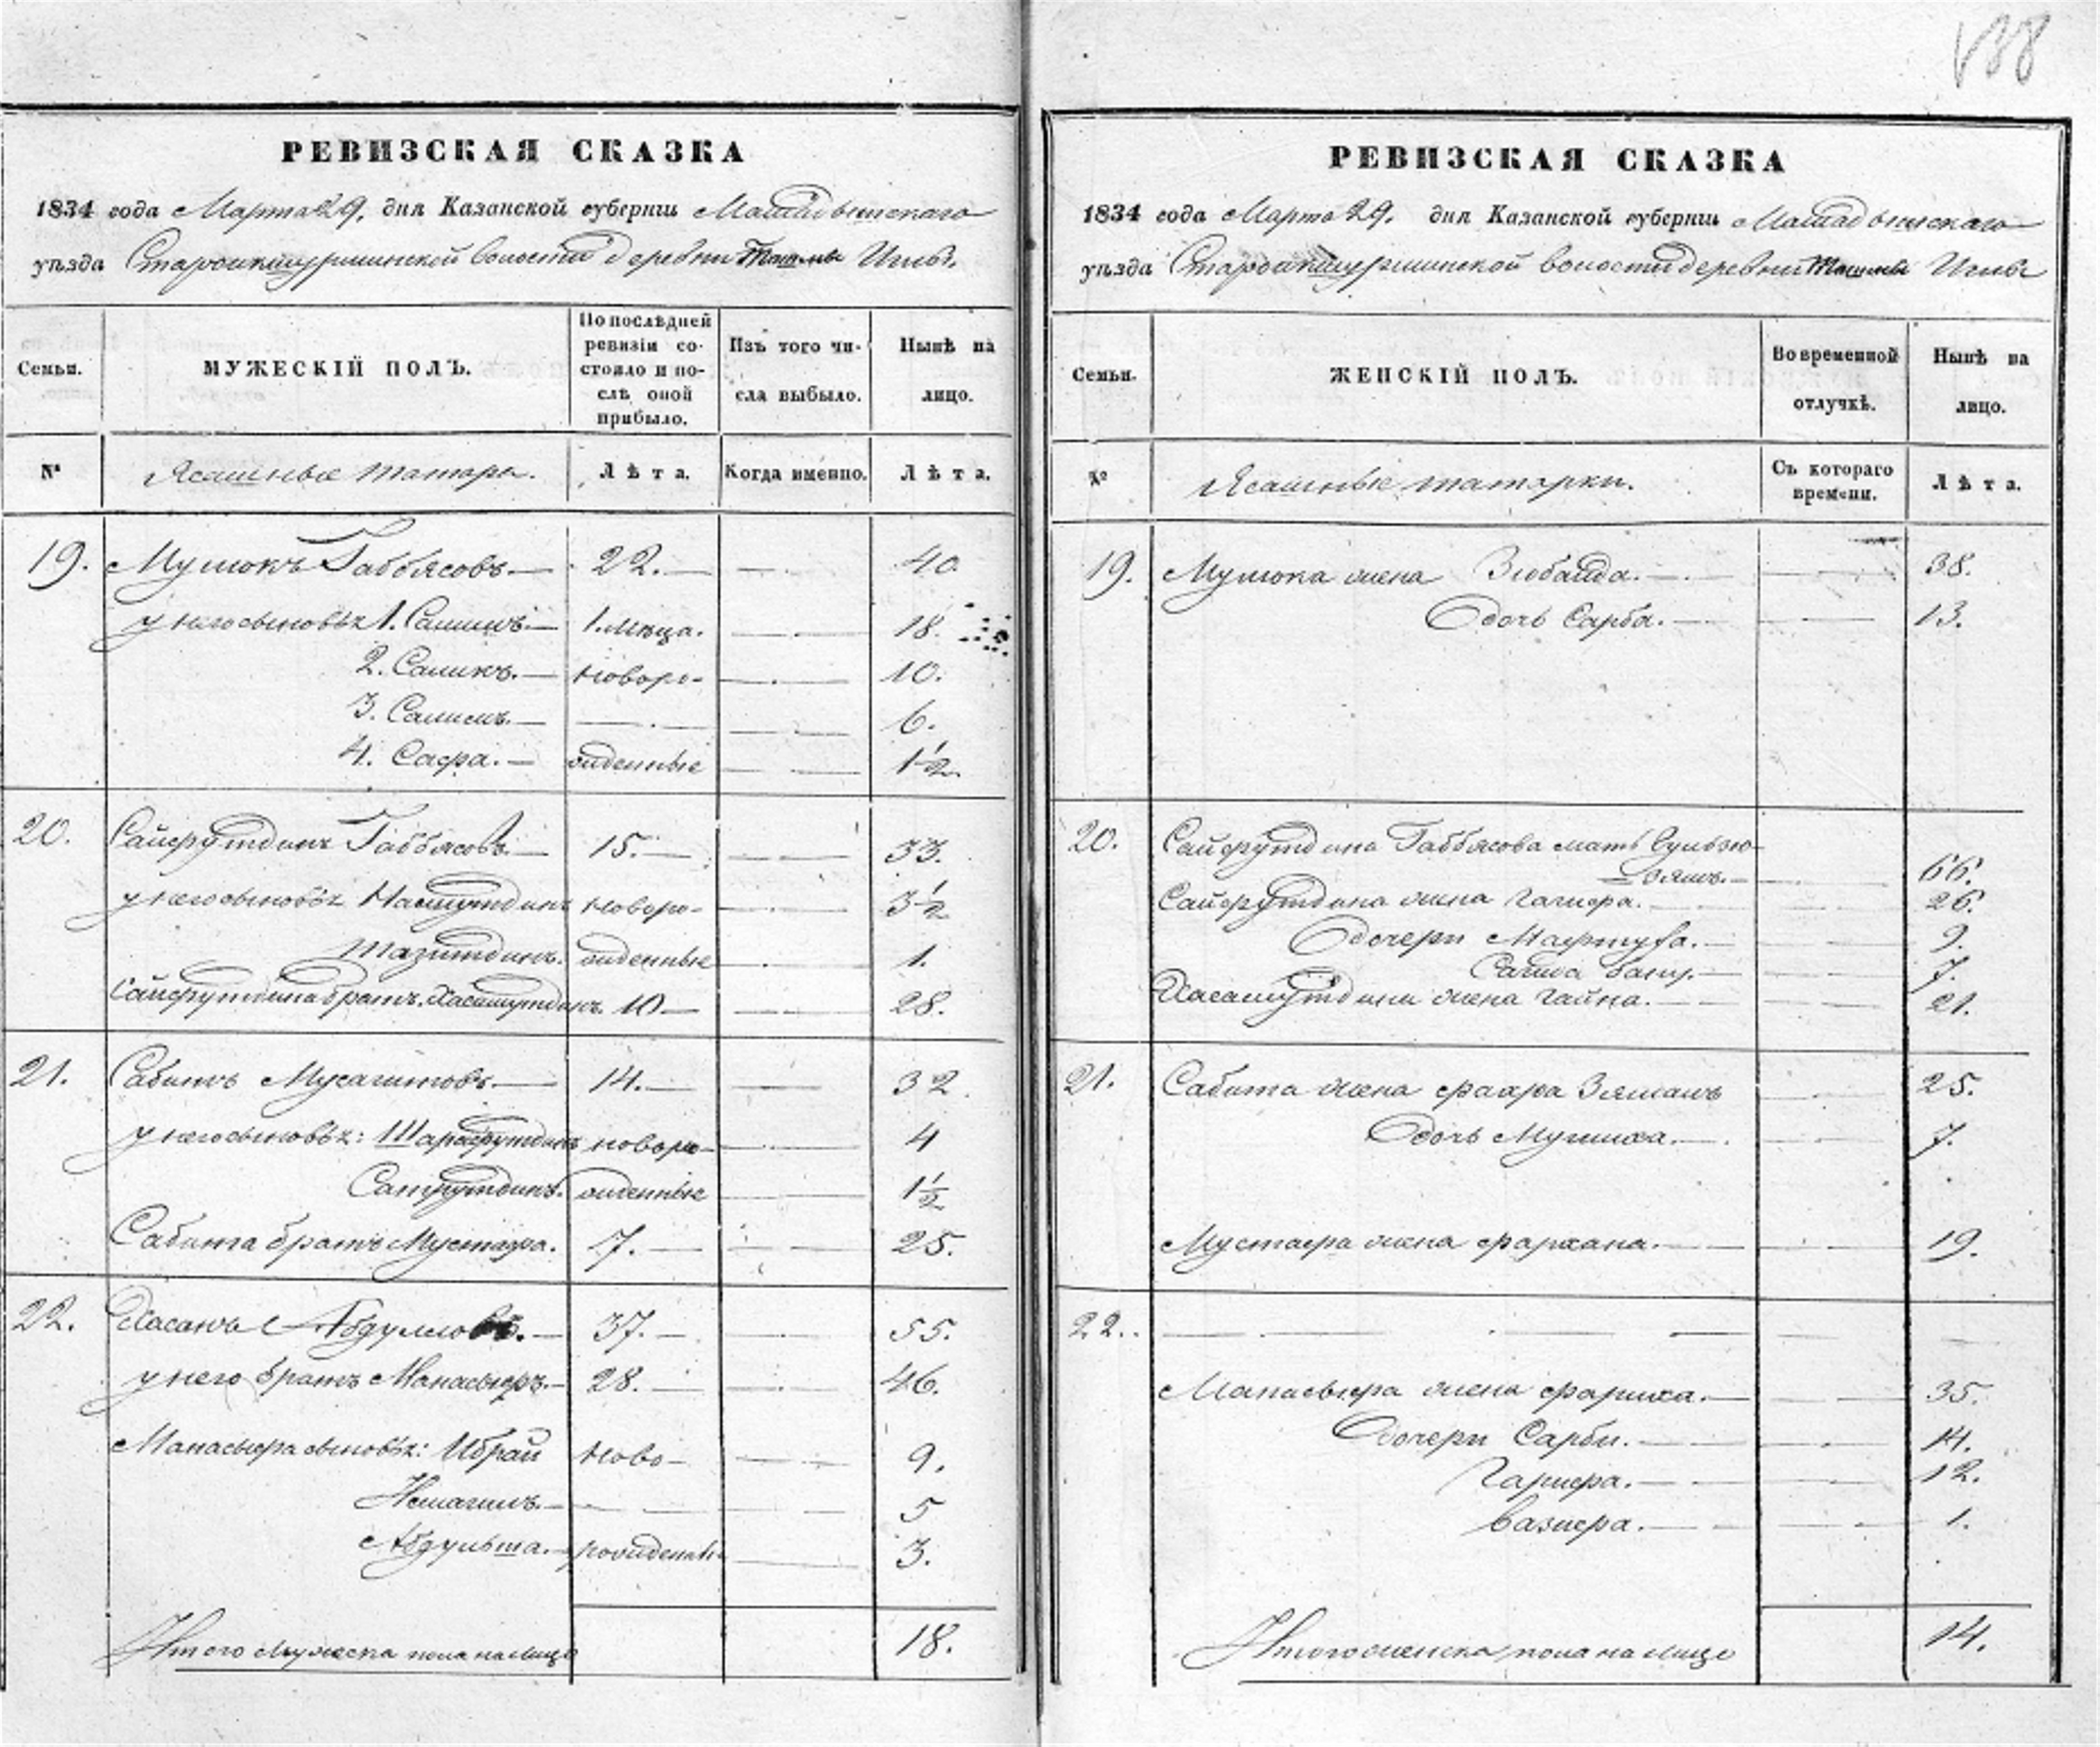 138
РЕВИЗСКАЯ СКАЗКА
1834 года Марта 29. дня Казанской губернiи Мамадышскаго
уѣзда волости деревни Ташлы Илгы.
Семьи.
МУЖЕСКIЙ ПОЛЪ.
По послѣдней ревизiи состояло и послѣ оной прибыло.
Изъ того числа выбыло.
Нынѣ на лицо.
№
Ясашные татары.
Лѣта.
Когда именно.
Лѣта.
19. Мушокъ Габбясовъ. 22. 40
у него сыновья 1. 1. мѣсца. 18.
2. Саликъ. новоро- 10.
3. Салимъ. 6.
4. Сафа. жденные 1 1/2.
20. Сайфутдинъ Габбясовъ. 15. 33.
у него сыновья новоро- 3 1/2
Тазитдинъ. жденные 1.
Сайфутдина братъ Хасамутдинъ. 10 28.
21. Сабитъ Мусагитовъ. 14. 32.
у него сыновья: Шарафутдинъ новоро- 4
жденные 1 1/2
Сабита братъ Мустафа. 7. 25.
22. Хасанъ Абдулловъ. 37. 55.
у него братъ Манасыръ. 28. 46.
Манасыра сыновья: Ибрай ново- 9.
Исмагилъ. 5
рожденны 3.
Итого мужеска пола на лицо 18.
РЕВИЗСКАЯ СКАЗКА
1834 года Марта 29. дня Казанской губернiи Мамадышскаго
уѣзда волости деревни Ташлы Илгы
Семьи.
ЖЕНСКIЙ ПОЛЪ.
Во временной отлучкѣ.
Нынѣ на лицо.
№
Ясашные татарки.
Съ котораго времени.
Лѣта.
19. Мушока жена Зюбайда. 38.
дочь Сарба. 13.
20. Сайфутдина Габбясова мать 66.
Сайфутдина жена 26.
дочери Мафтуха. 9.
Сагида бану. 7.
Хасамутдина жена Гайна. 21.
21. Сабита жена фахра Зяманъ 25.
дочь 7.
Мустафа жена фархана. 19.
22.
Манасыра жена фариха. 35.
дочери Сарби. 14.
12.
Вазифа. 1.
Итого женска пола на лицо 14.